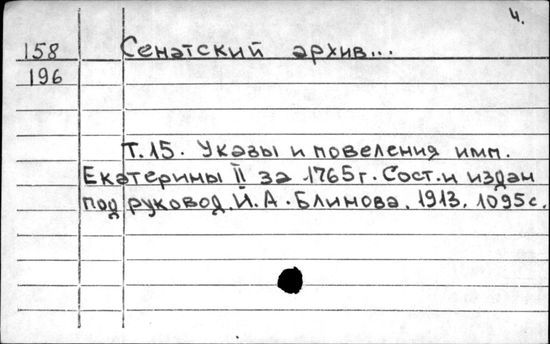 4.
158 Сенатский архив...
196
Т.15. Указы и повеления имп.
Екатерины II за 1765г. Сост. и издан
под руковод. И.А. Блинова. 1913. 1095с.